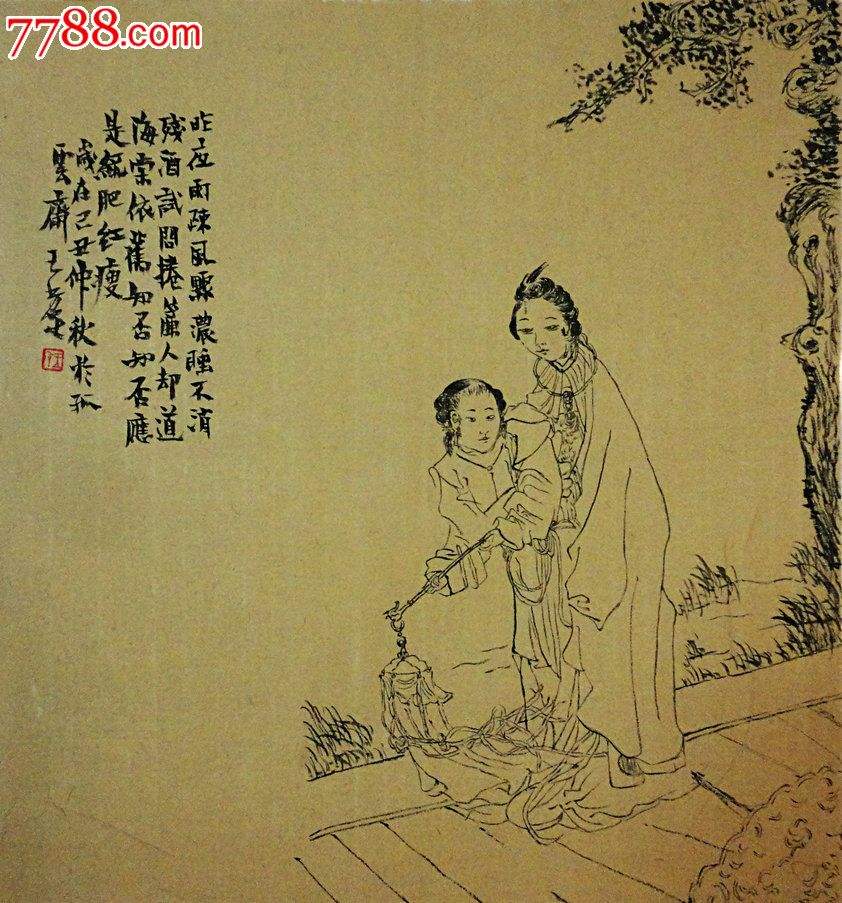 7788.com
昨夜雨疎風驟濃睡不消
残酒試問捲簾人却道
海棠依舊知否知否應
是綠肥紅瘦
歲在己丑仲秋於孤
雲齋王